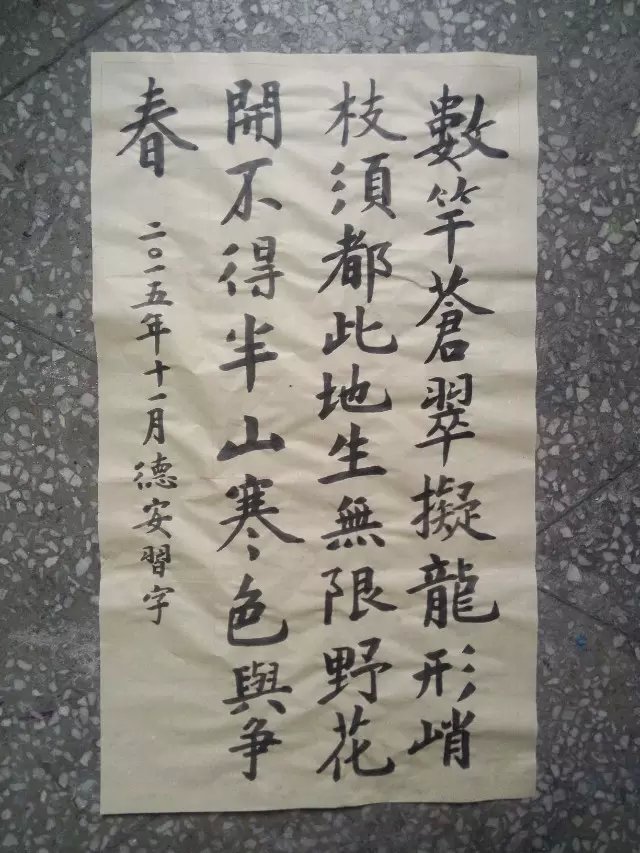 數竿蒼翠擬龍形峭
枝須都此地生無限野花
開不得半山寒色與爭
春
二〇一五年十一月德安習字